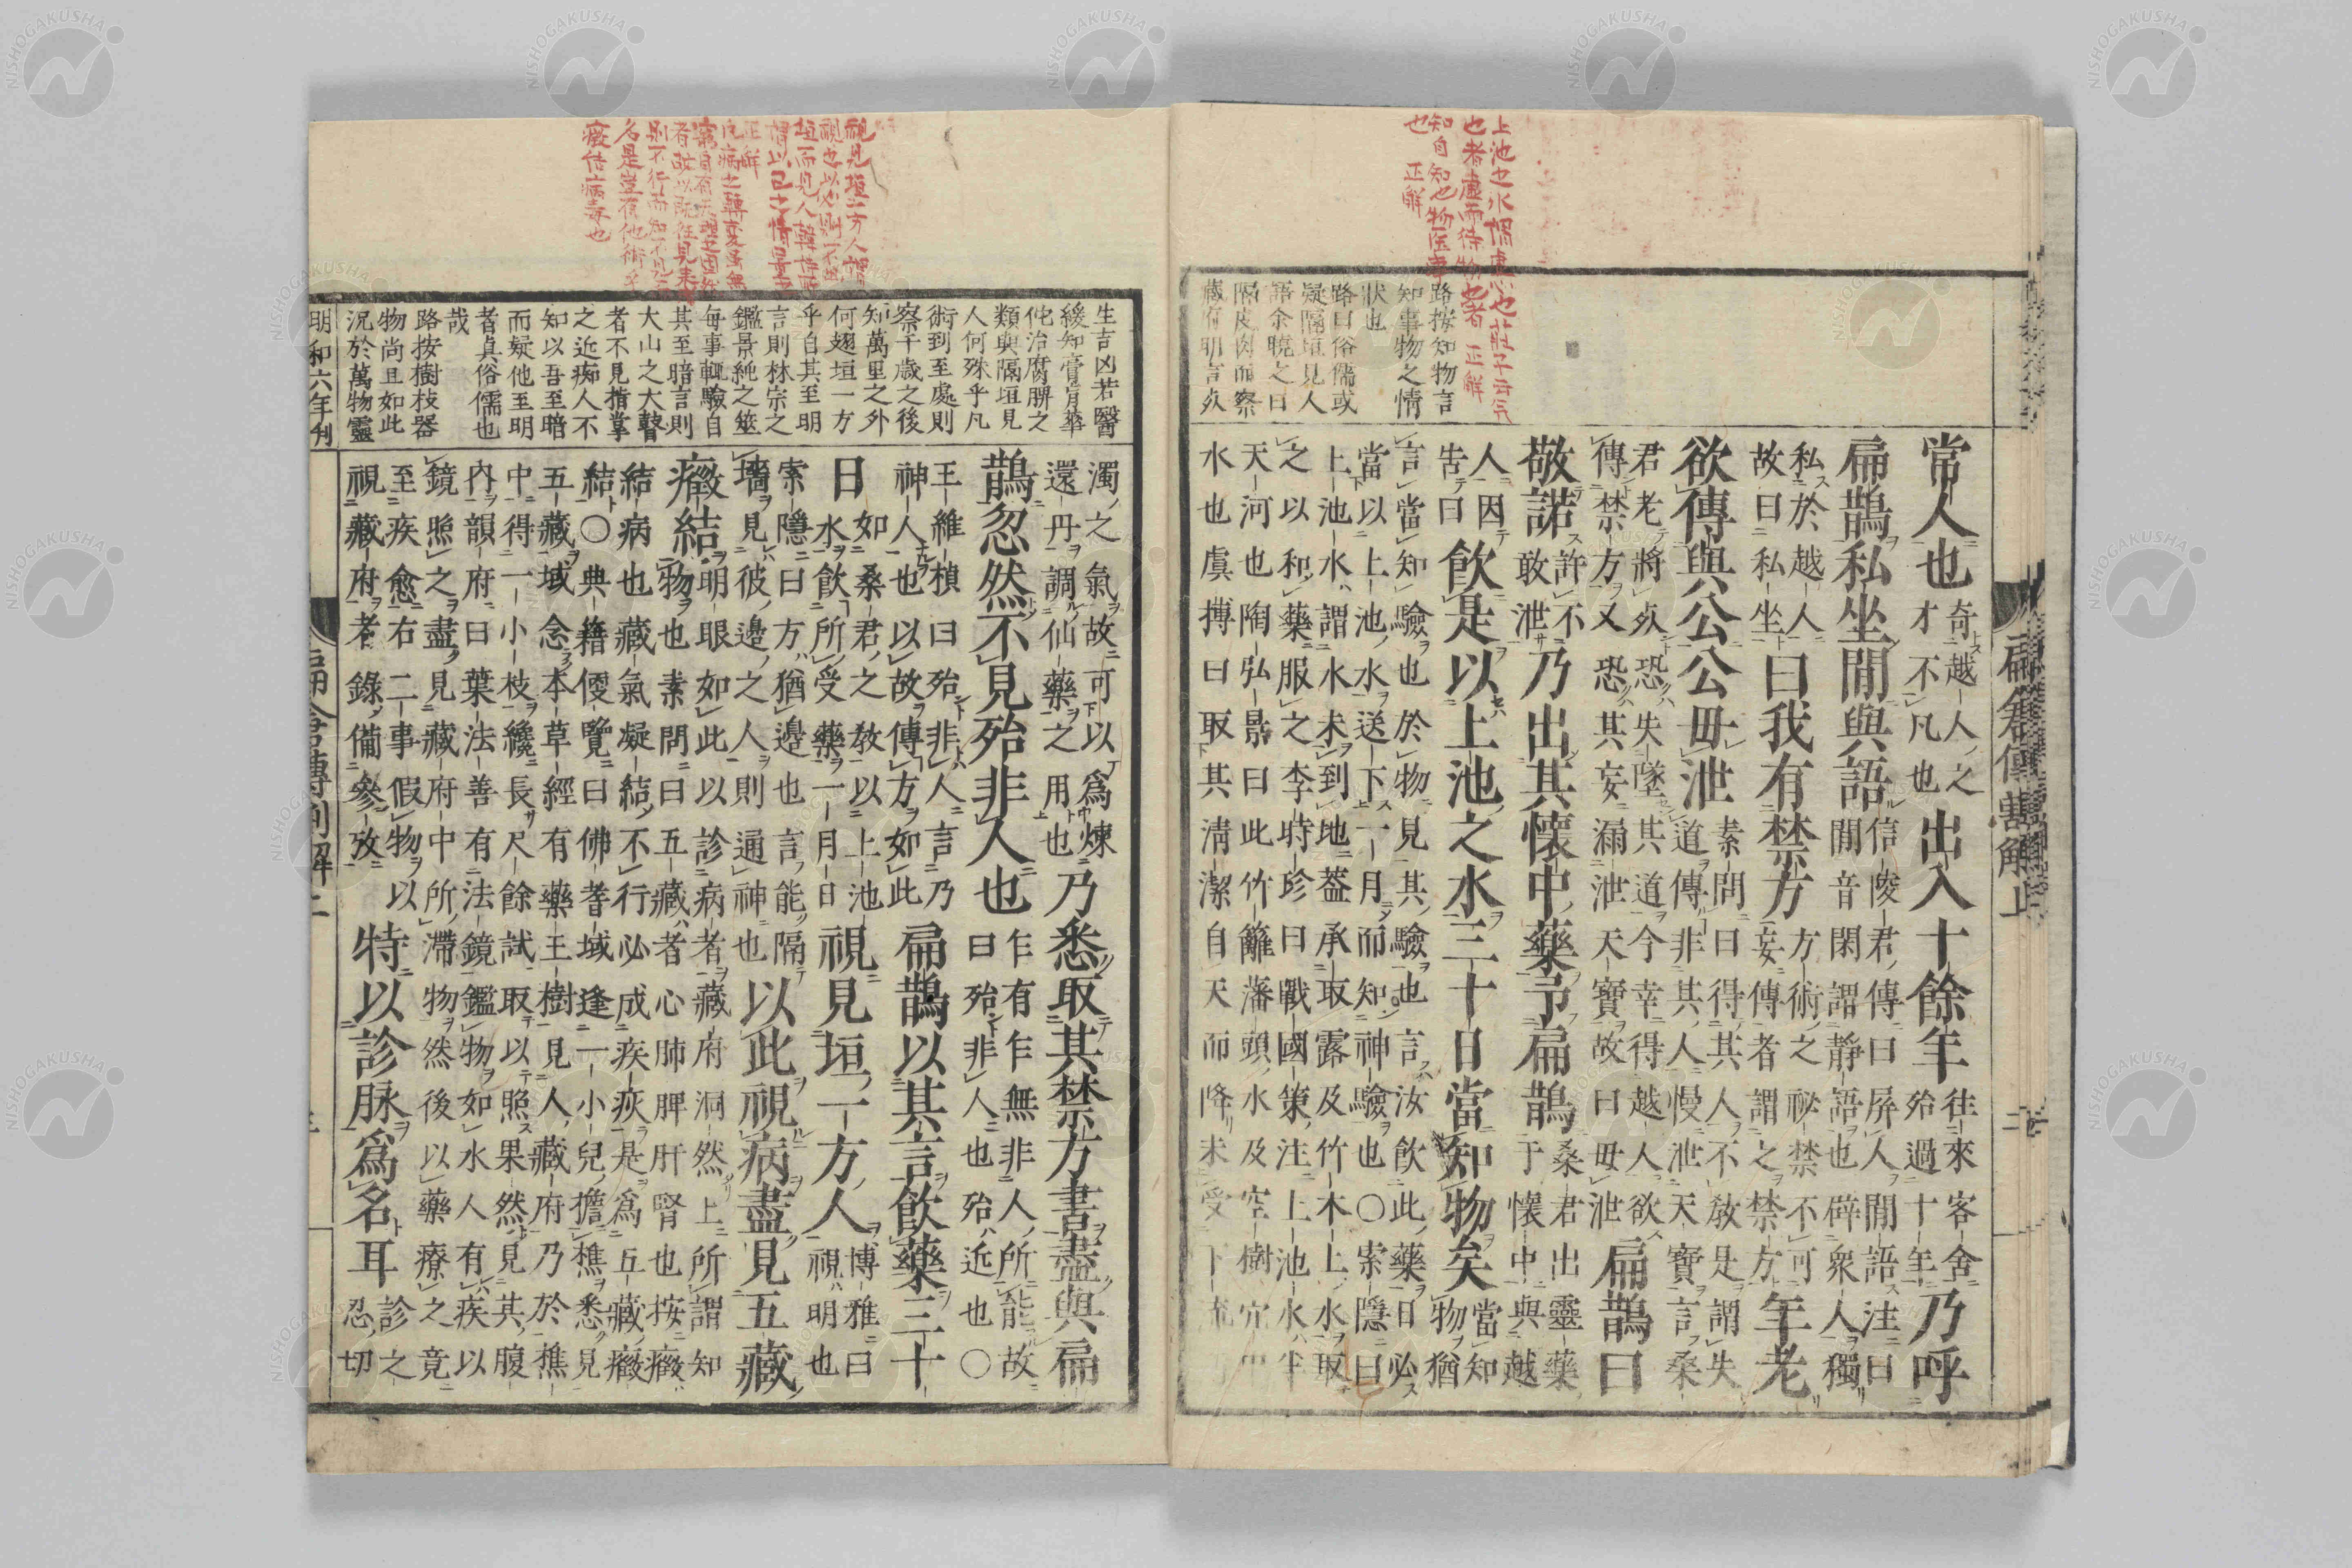 上池之水謂虛也莊子云气
也者虛而待物也者 正解
知自知也物医事
也 正解
路按知物言
知事物之情
狀也
路曰俗儒或
疑隔垣見人
語余曉之曰
隔皮肉而察
藏府明言死
常人也奇越人之才不凡也出入十餘年往來客舍殆過十年乃呼
扁鵲私坐閒與語信陵君傳曰屏人閒語注曰閒音閑謂靜語也辟衆人獨
私於越人故曰私坐曰我有禁方方術之祕禁不可妄傳者謂之禁方年老
欲傳與公公毋泄素問曰得其人不敎是謂失道傳非其人慢泄天寶言桑
君老將死恐失墜其道今幸得越人欲傳禁方又恐其妄漏泄天寶故曰毋泄扁鵲曰
敬諾許不敢泄乃出其懷中藥予扁鵲桑君出靈藥于懷中與越
人因告曰飮是以上池之水三十日當知物矣當知物猶
言當知驗也於物見其驗也言汝飮此藥日必
當以上池水送下一月而知神驗也〇索隱曰
上池水謂水未到地蓋承取露及竹木上水取
之以和藥服之李時珍曰戰國策注上池水半
天河也陶弘景曰此竹籬藩頭水及空樹穴中
水也虞摶曰取其淸潔自天而降未受下流
視見垣一方人謂
垣而見人
名是豈有他術乎
癥結病毒也
生吉凶若醫
緩知膏肓華
佗治腐脾之
類與隔垣見
人何殊乎凡
術到至處則
察千歳之後
知萬里之外
何翅垣一方
乎自其至明
言則林宗之
鑑景純之筮
每事輒驗自
其至暗言則
大山之大瞽
者不見指掌
之近痴人不
知以吾至暗
而疑他至明
者眞俗儒也
哉
路按樹枝器
物尚且如此
況於萬物靈
濁之氣故可以爲煉還丹調仙藥之用也乃悉取其禁方書盡與扁
鵲忽然不見殆非人也乍有乍無非人所能故曰殆非人也殆近也〇
王維楨曰殆非人言乃神人也以故傳方如此扁鵲以其言飮藥三十
日如桑君之敎以上池水飮所受藥一月日視見垣一方人博雅曰視明也
索隱曰方猶邊也言能隔墻見彼邊之人則通神也以此視病盡見五藏
癥結明眼如此以診病者藏府洞然上所謂知物也素問曰五藏者心肺脾肝腎也按癥
結病也藏氣凝結不行必成疾疢是爲五藏癥
結〇典籍便覽曰佛耆域逢一小兒擔樵悉見
五藏域念本草經有藥王樹見人藏府乃於樵
中得一小枝纔長尺餘試取以照果然見其腹
內韻府曰葉法善有法鏡鑑物如水人有疾以
鏡照之盡見藏府中所滯物然後以藥療之竟
至疾愈右二事假物以視藏府者錄備參攷特以診脉爲名耳診之忍切
明和六年刊
NISHOGAKUSHA